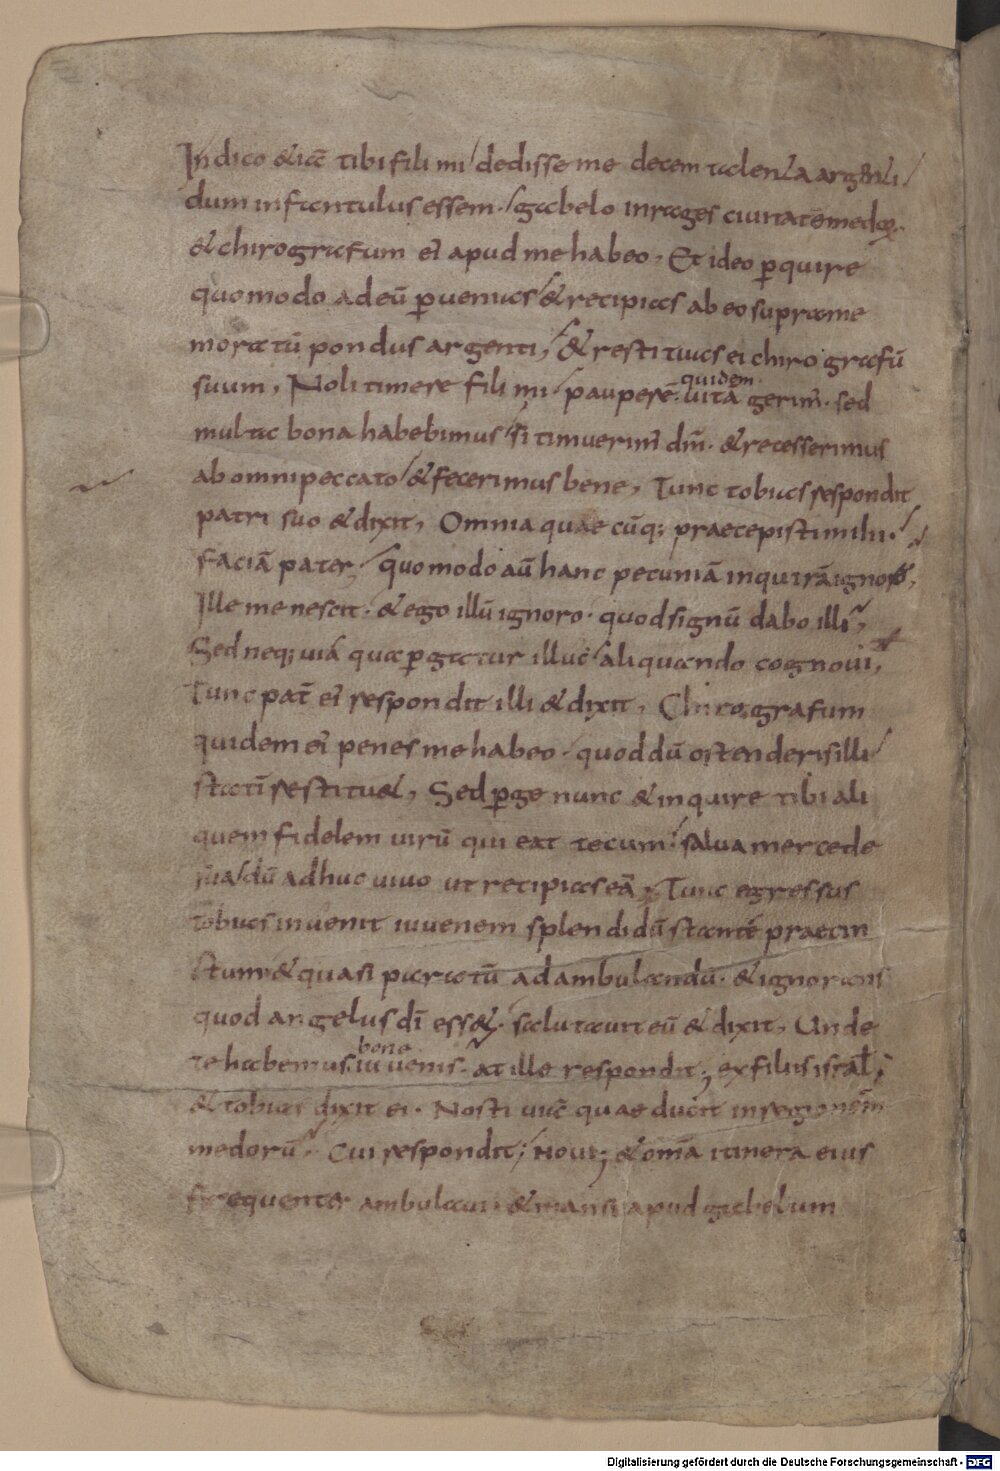 Indico &iā tibi fili mi dedisse me decem talenta argenti
dum infantulus essem. gabelo in rages ciuitatē medoꝝ.
& chirografum ei apud me habeo, Et ideo ꝑquire
quomodo ad eū ꝑuenias & recipias ab eo supra me
moratū pondus argenti, & restituas ei chirografū
suum, Noli timere fili mi pauperē quidem uitā gerim̄. sed
multa bona habebimus si timuerim̄ dm̄. & recesserimus
ab omni peccato & fecerimus bene, Tunc tobias respondit
patri suo & dixit, Omnia quaecūq; praecepisti mihi.
faciā pater; quomodo aū hanc pecuniā inquirā ignoro,
Ille me nescit. & ego illū ignoro. quod signū dabo illi,
Sed neq; uiā qua ꝑgatur illuc aliquando cognoui,
Tunc pat̄ ei respondit illi & dixit, Chirografum
quidem ei penes me habeo. quod dū ostenderis illi
statī restitu&, Sed ꝑge nunc & inquire tibi ali
quem fidelem uirū qui eat tecum salua mercede
sua dū adhuc uiuo ut recipias eā, Tunc egressus
tobias inuenit iuuenem splendidū stantē praecin
ctum & quasi paratū ad ambulandū. & ignorans
quod angelus dī ess&. salutauit eū & dixit, Unde
te habemus bone iuuenis. at ille respondit; ex filiis israł,
& tobias dixit ei. Nosti uiā quae ducit in regionem
medorū, Cui respondit; Noui; & omīa itinera eius
frequenter ambulaui & mansi apud gabelum
Digitalisierung gefördert durch die Deutsche Forschungsgemeinschaft - DFG